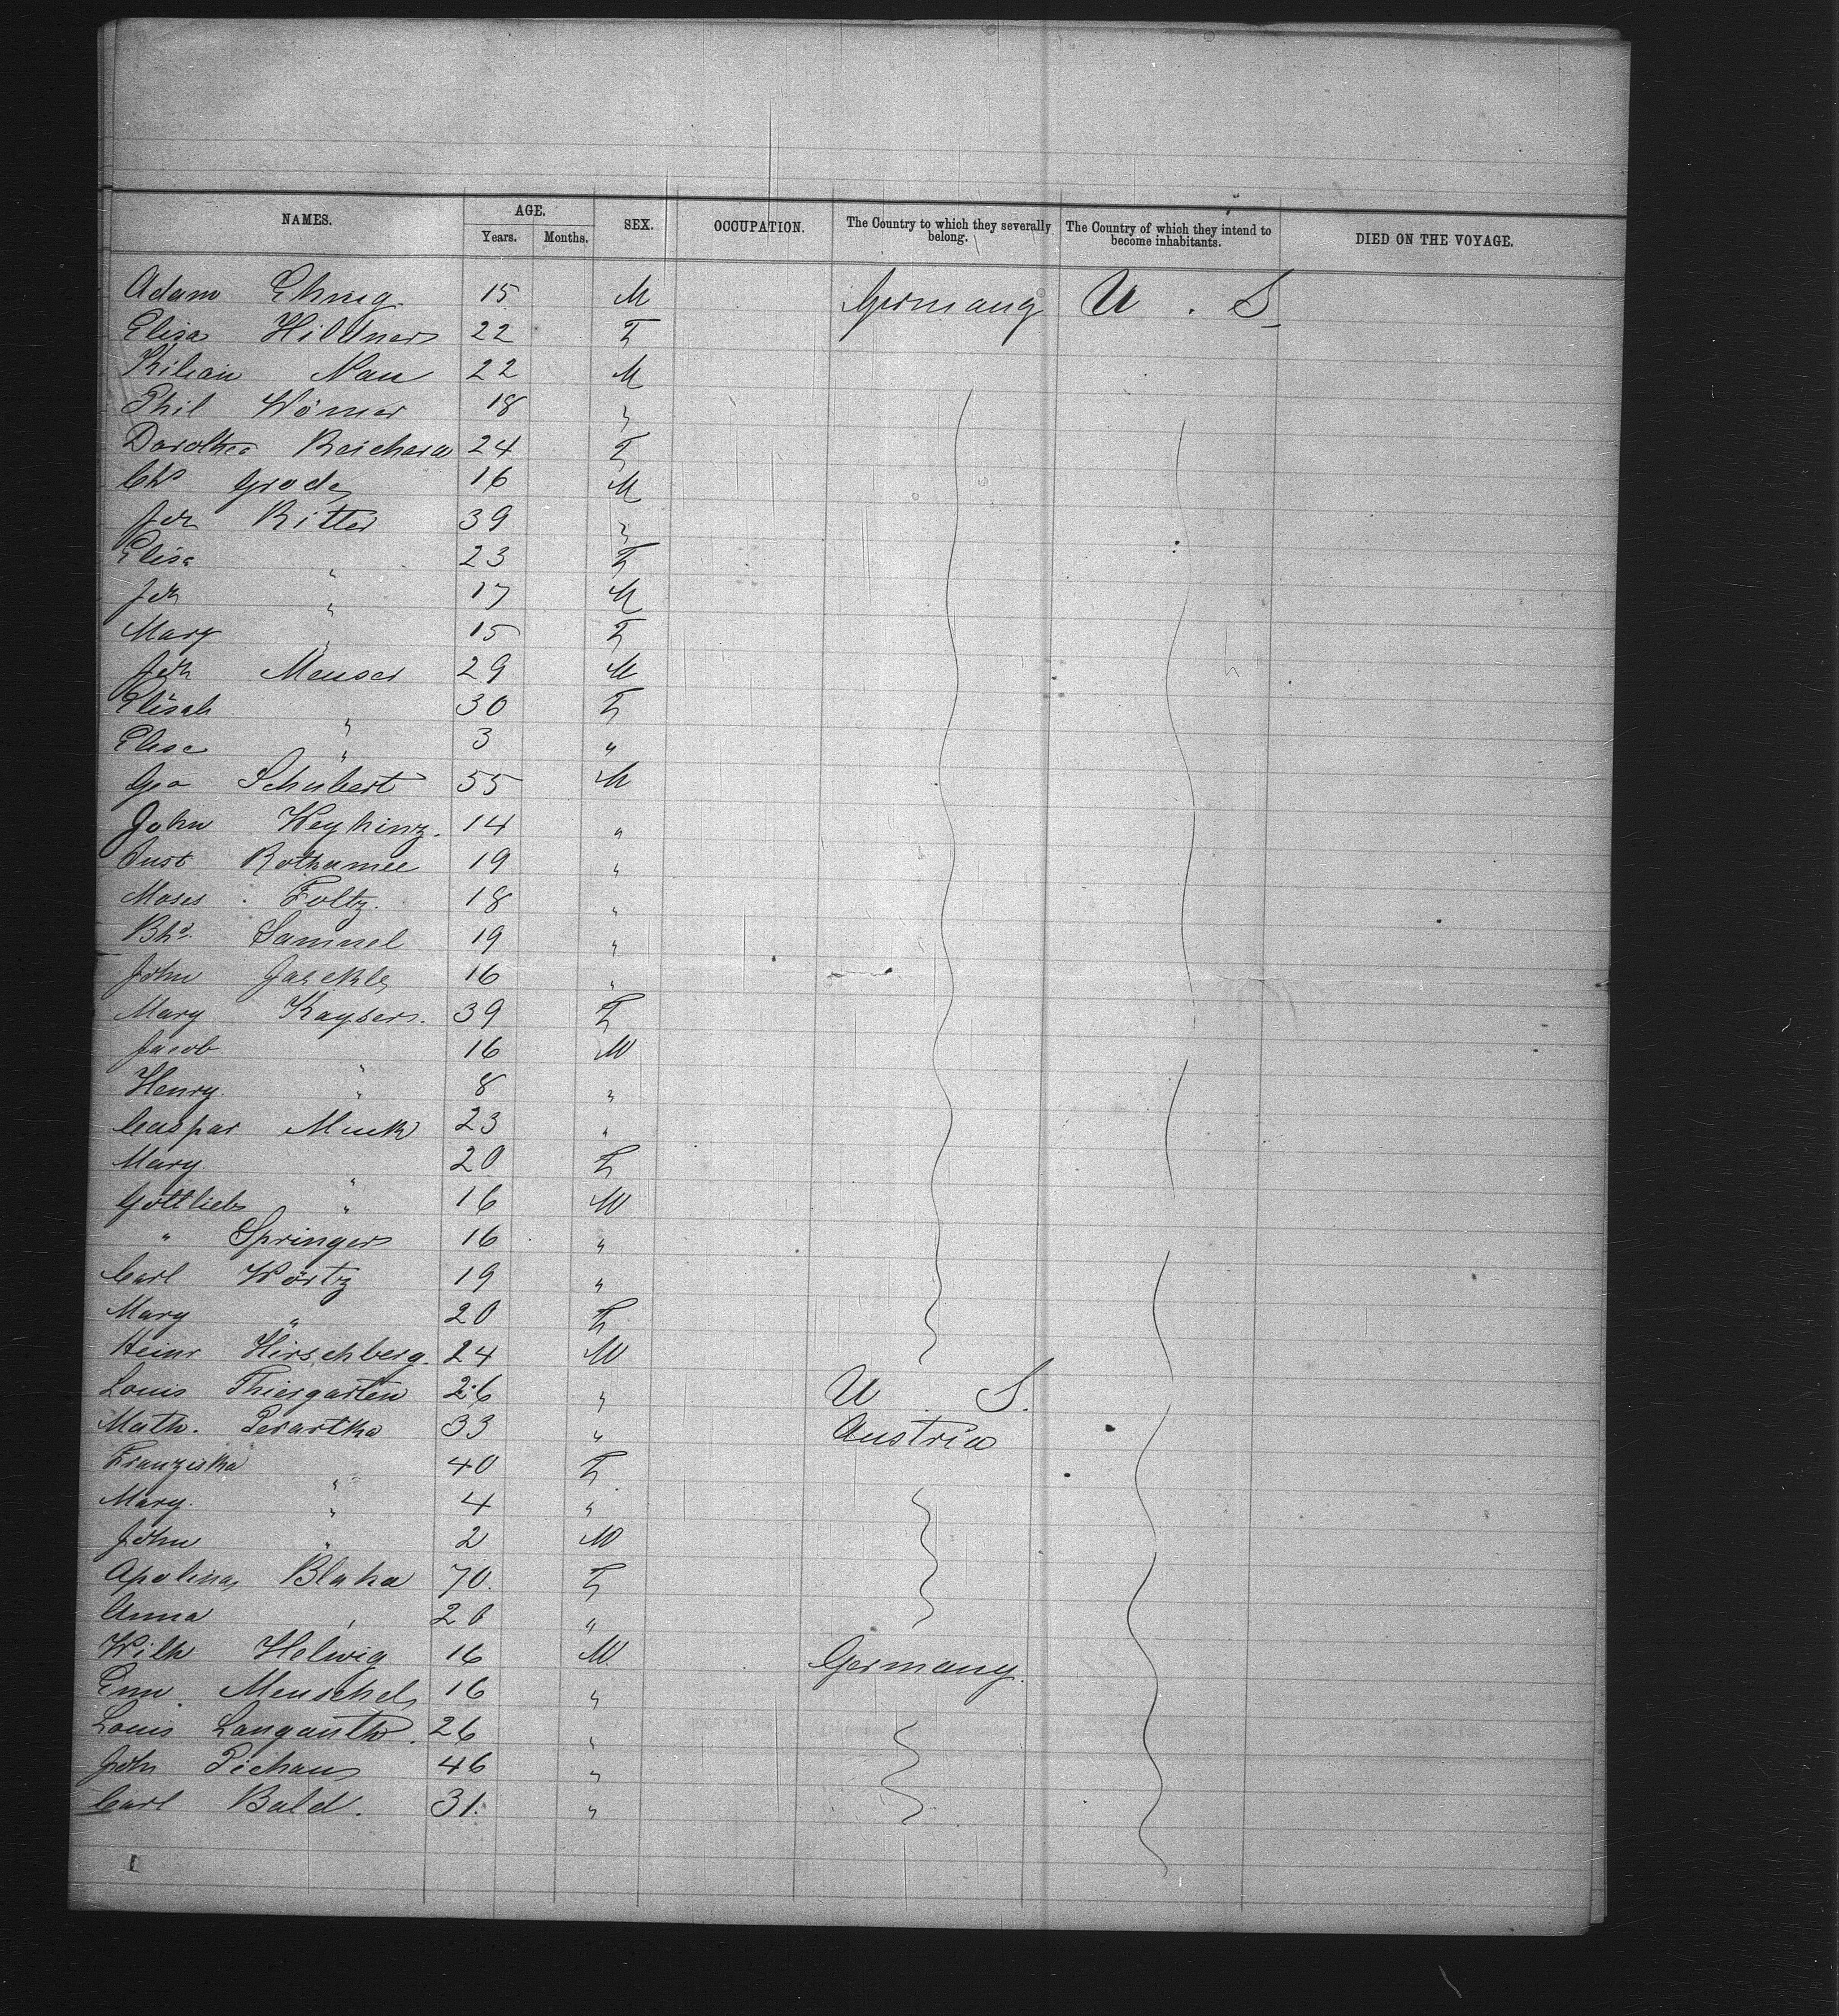 NAMES. AGE. SEX. OCCUPATION. The Country to which they severally belong. The Country of which they intend to become inhabitants. DIED ON THE VOYAGE.
Years. Months.
Adam Ehnig 15 M Germany U . S
Elisa Hildner 22 F
Kilian Nau 22 M
Phil Wörner 18 "
Dorothea Reichera 24 F
Chs Grode 16 M
Joh Ritter 39 "
Elisa " 23 F
Joh " 17 M
Mary " 15 F
Joh Meuser 29 M
Elisab " 30 F
Elise " 3 "
Geo Schubert 55 M
John Weyhinz. 14 "
Just Rothamel 19 "
Moses Foltz. 18 "
Bhd. Sammel 19 "
John Jaeckle 16 "
Mary Kayser. 39 F
Jacob " 16 M
Henry " 8 "
Caspar Muck 23 "
Mary " 20 F
Gottlieb " 16 M
" Springer 16 "
Carl Wörtz 19 "
Mary " 20 F
Heinr Hirschberg. 24 M
Louis Thiergarten 26 " U . S.
Math. Perartka 33 " Austria
Franziska " 40 F
Mary. " 4 "
John " 2 M
Apolina Blaha 70. F
Anna " 20 "
Wilh Helwig 16 M. Germany.
Enn. Meuschel 16 "
Louis Langanth. 26 "
John Pichaus 46 "
Carl Bald. 31. "